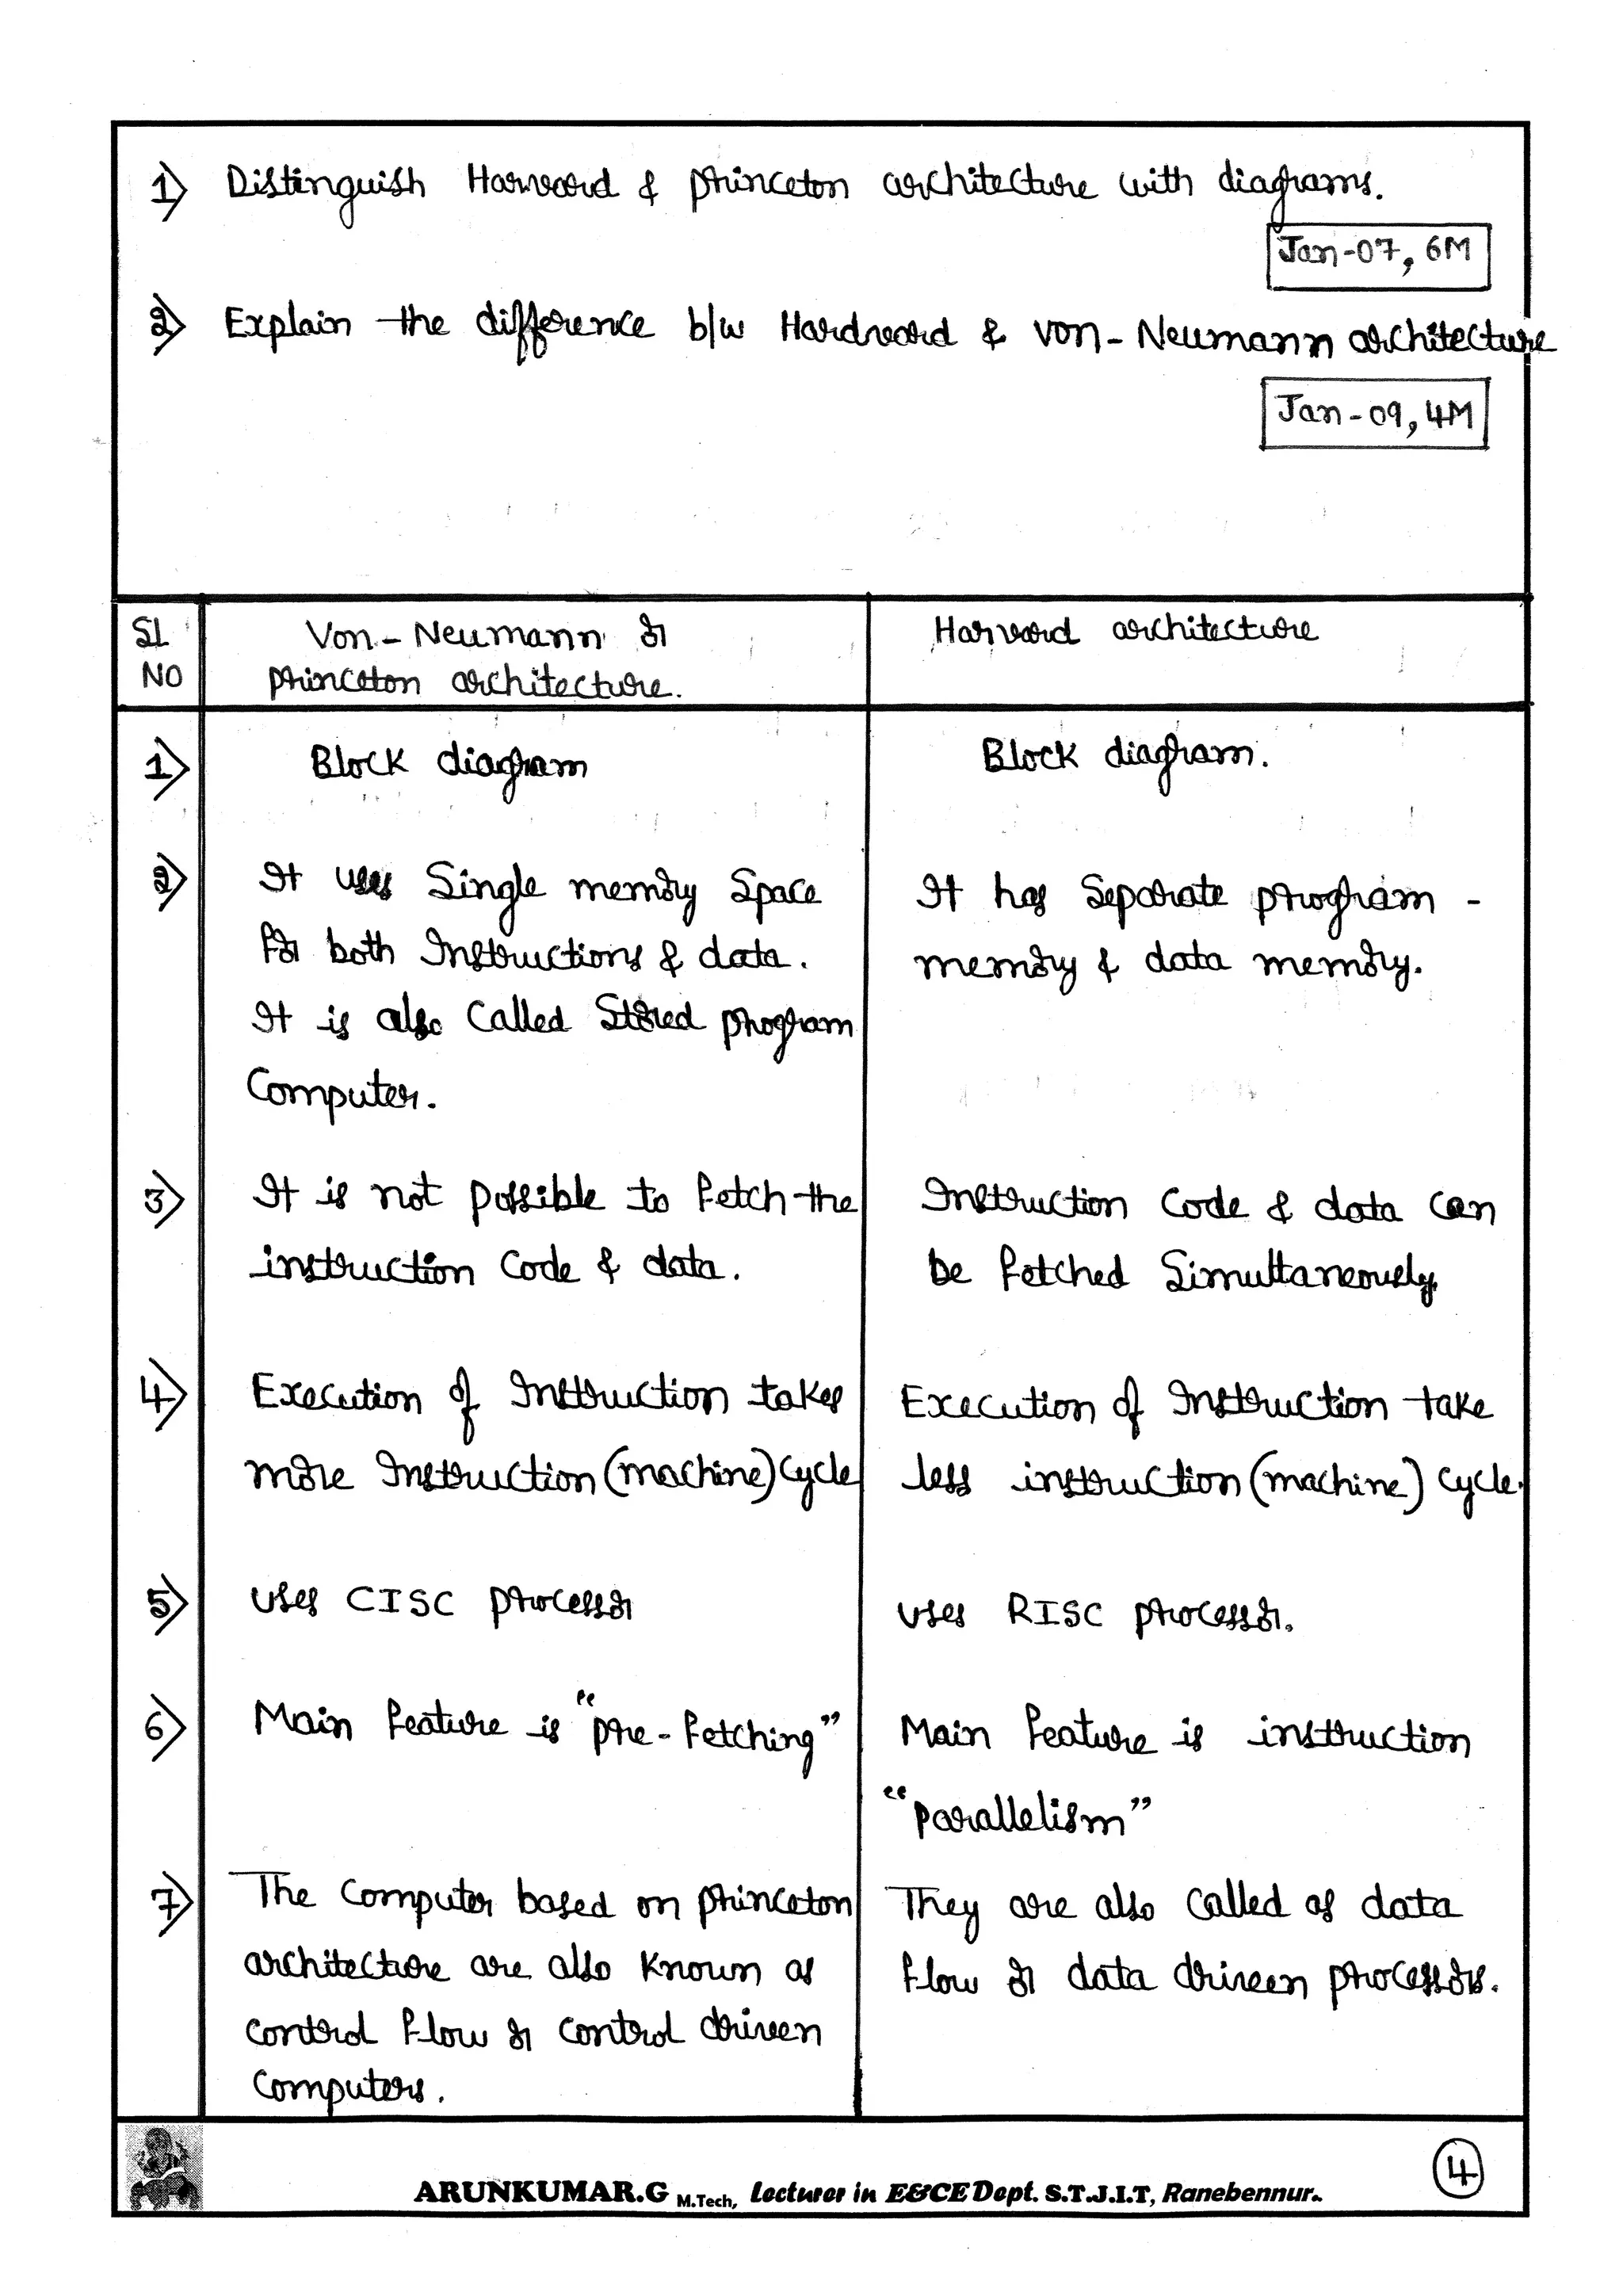 1) Distinguish Harvard & princeton architecture with diagrams.
Jan-07, 6M
2) Explain the difference b/w Hardvard & von-Neumann architecture
Jan-09, 4M
SL NO
Von-Neumann or
princeton architecture.
Harvard architecture
1) Block diagram
Block diagram.
2) It uses Single memory Space
for both Instructions & data.
It is also Called Stored program
Computer.
It has Separate program -
memory & data memory.
3) It is not possible to fetch the
instruction Code & data.
Instruction Code & data can
be fetched Simultaneously
4) Execution of Instruction takes
more Instruction (machine) cycle
Execution of Instruction take
less instruction (machine) cycle.
5) uses CISC processor
uses RISC processor.
6) Main feature is "pre-fetching"
Main feature is instruction
"parallelism"
7) The Computer based on princeton
architecture are also known as
control flow or control driven
Computers.
They are also called as data
flow or data driveen processors.
ARUNKUMAR.G M.Tech, Lecturer in E&CE Dept. S.T.J.I.T, Ranebennur.
4